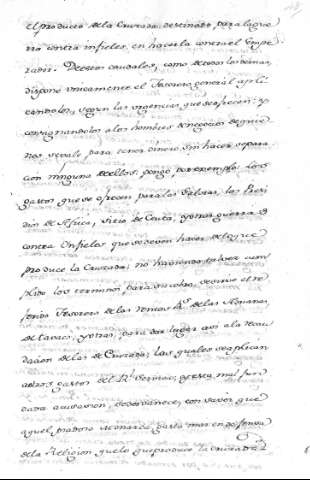 el producto de la Cruzada destinado para la gue
rra contra infieles, en hacerla contra el Empe
rador. De estos caudales, como de todos los demas,
dispone unicamente el Tesorero general apli
candolos, segun las urgencias que se ofrecen; y
consignandolos a los hombres de negocios de quie
nes se vale para tener dinero, sin hacer separa
cion ninguna de ellos: pongo por exemplo: los
gastos que se ofrecen para las Galeras, los Presi
dios de Africa, sitio de Ceuta, y otras guerras
contra Infieles que se deven hacer, de lo que
produce la Cruzada; no haviendo
los terminos para su cobro, se sirve el re
ferido Tesorero de las Rentas R.s de las
de tavaco, y otras, para dar lugar a la recau
dacion de las de Cruzada; las quales se aplican
a otros gastos del R.l servicio; y esta mal fun
dada acusacion, se desvanece, con saver que
aquel piadoso Monarca gasta mas en defensa
de la Religion, que lo que produce la Cruzada